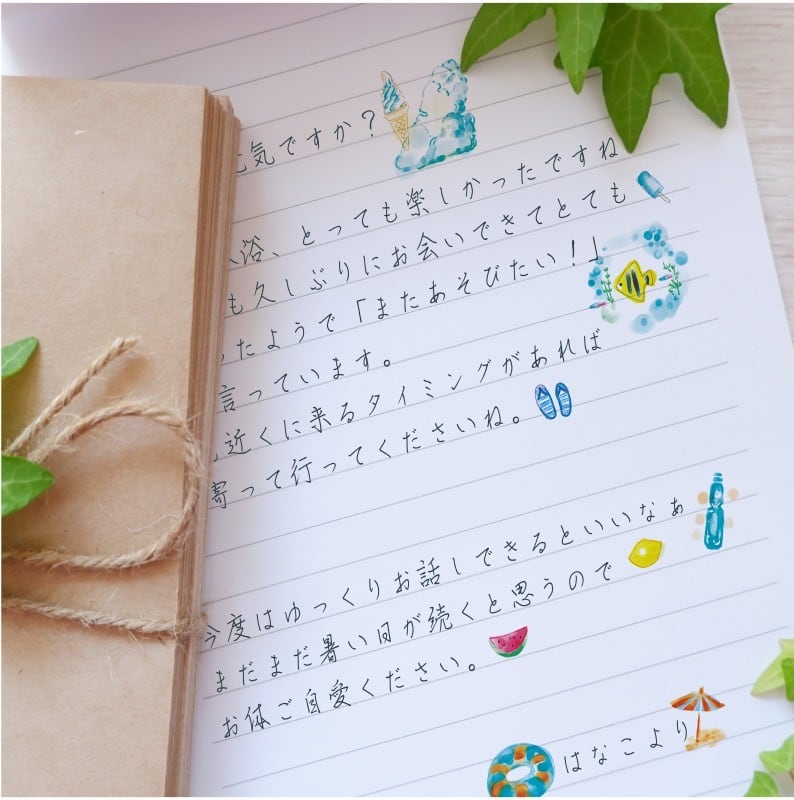 気ですか？
浴、とっても楽しかったですね
も久しぶりにお会いできてとても
たようで「またあそびたい！」
言っています。
近くに来るタイミングがあれば
寄って行ってくださいね。
今度はゆっくりお話しできるといいなぁ
まだまだ暑い日が続くと思うので
お体ご自愛ください。
はなこより